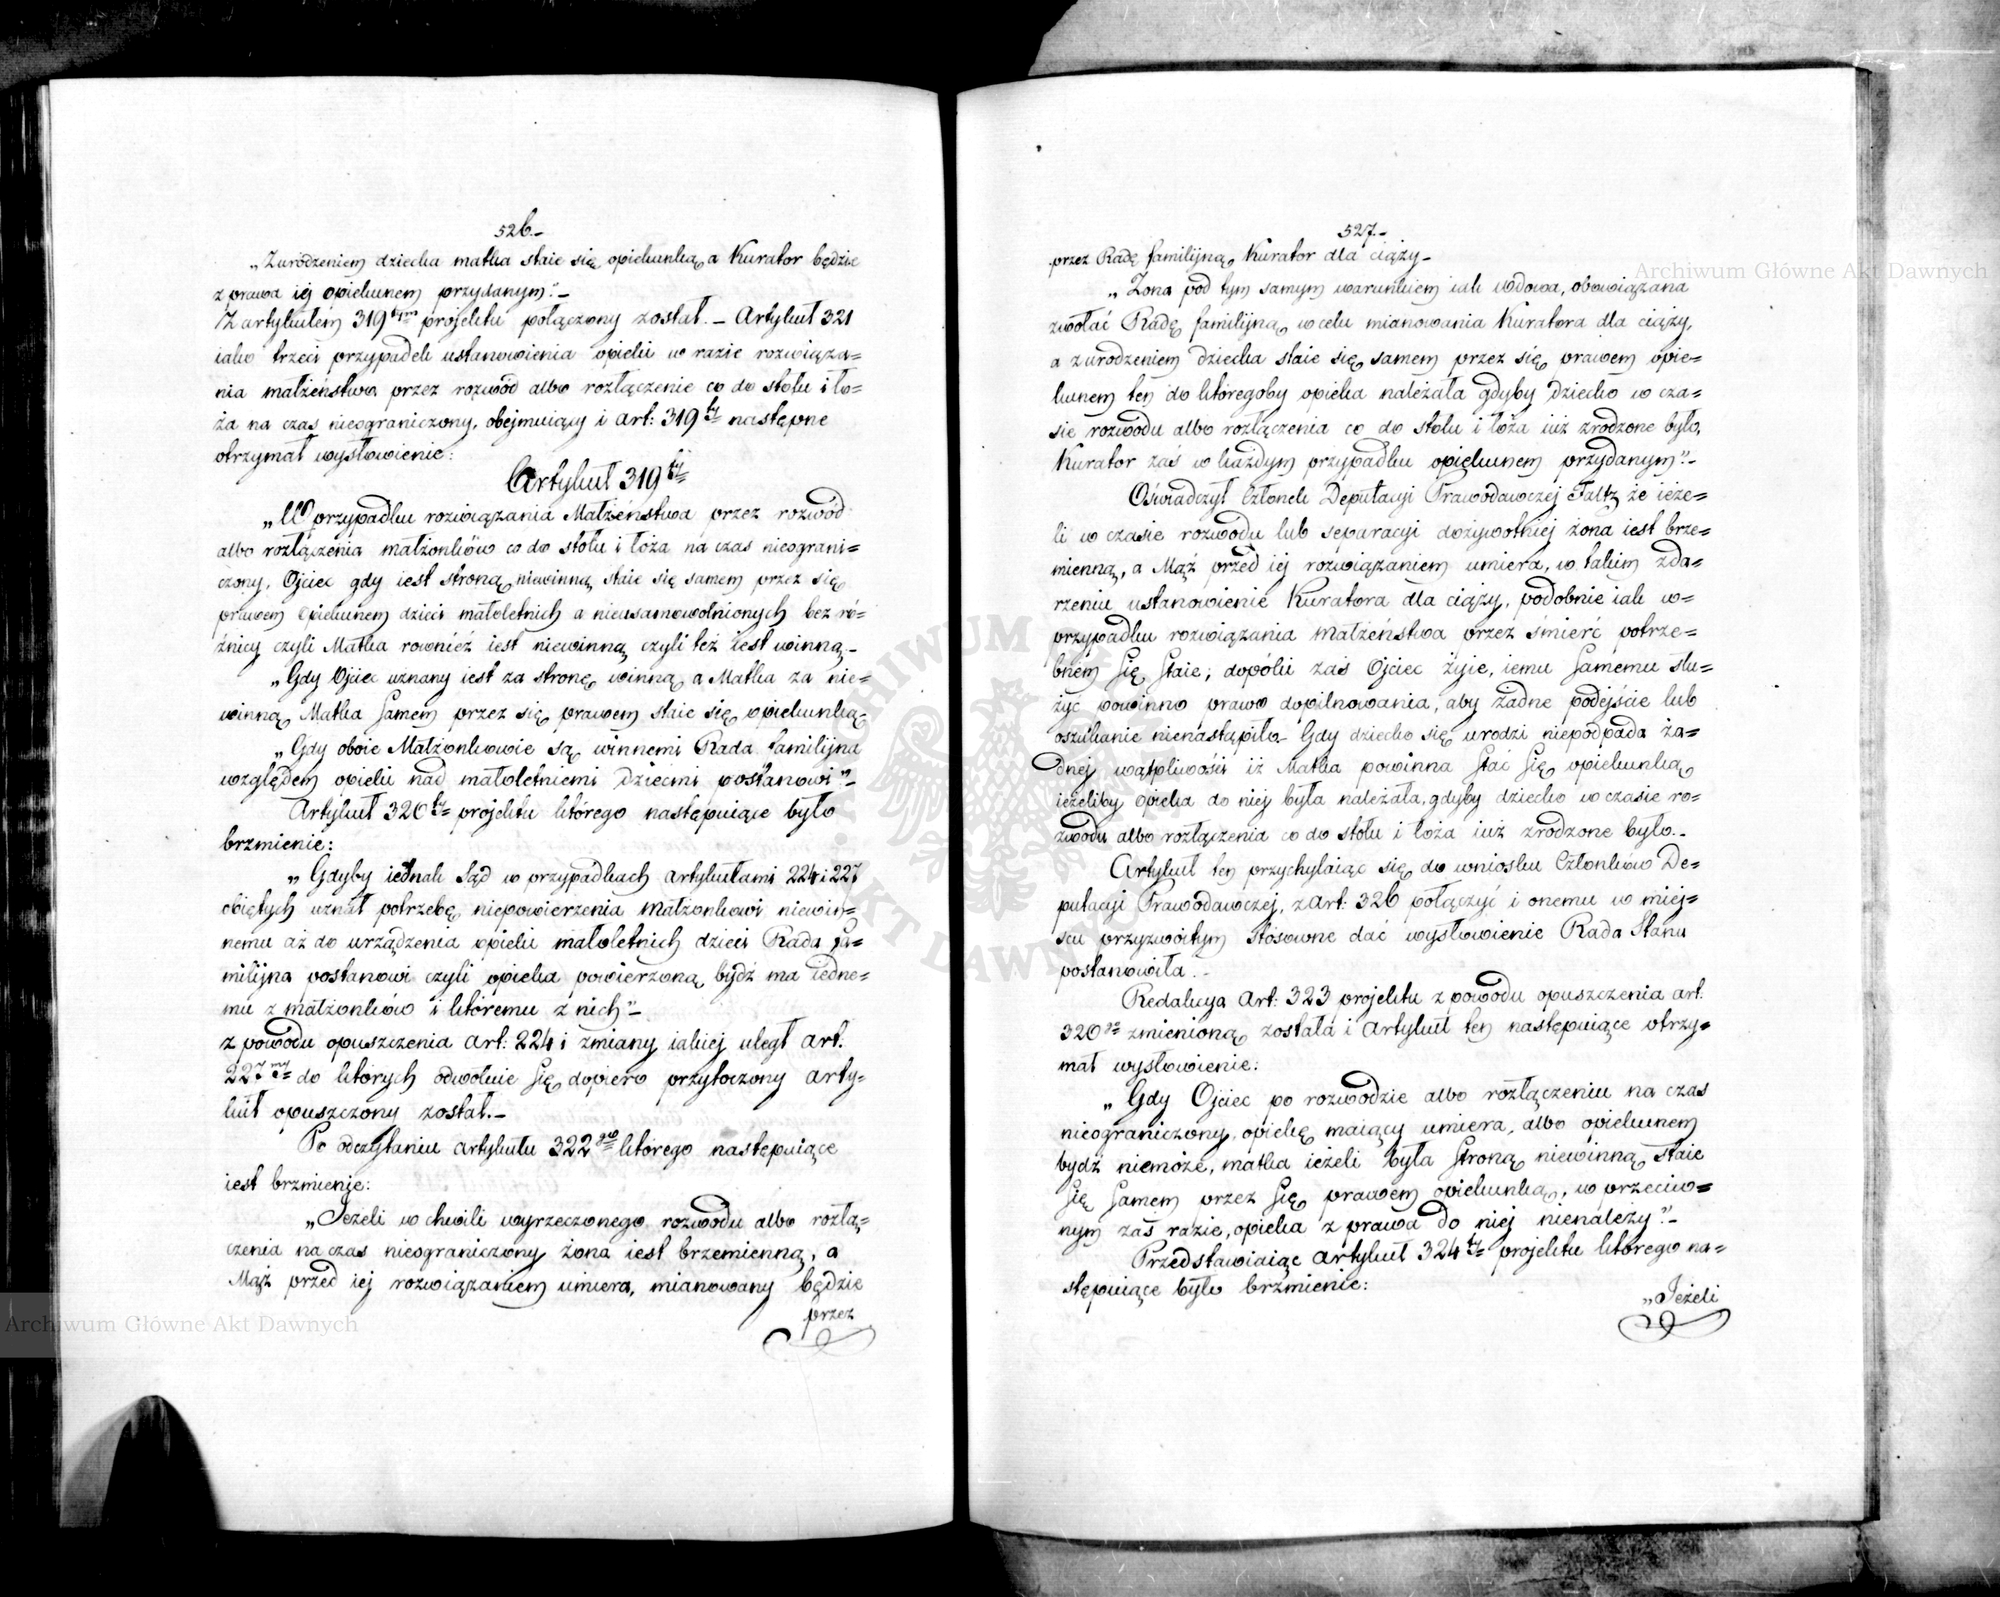 526.-
„Z urodzeniem dziecka matka staie się opiekunką a Kurator będzie
z prawa iéj opiekunem przydanym."-
Z artykułem 319tym projektu połączony został. - Artykuł 321
iako trzeci przypadek ustanowienia opieki w razie rozwiąza=
nia małżeństwa przez rozwód albo rozłączenie co do stołu i ło=
ża na czas nieograniczony, obejmuiący i art: 319ty następne
otrzymał wysłowienie:
Artykuł 319ty
„W przypadku rozwiązania Małżeństwa przez rozwód
albo rozłączenia małżonków co do stołu i łoża na czas nieograni=
czony, Ojciec gdy iest stroną niewinną staie się samem przez się
prawem opiekunem dzieci małoletnich a nieusamowolnionych bez ró=
żnicy czyli Matka rownież iest niewinną czyli też iest winną.-
„Gdy Ojciec uznany iest za stronę winną a Matka za nie=
winną Matka samem przez się prawem staie się opiekunką
„Gdy oboie Małżonkowie są winnemi Rada familijna
względem opieki nad małoletniemi dziećmi postanowi."-
Artykuł 320ty projektu którego następuiące było
brzmienie:
„Gdyby iednak Sąd w przypadkach artykułami 224 i 227
obiętych uznał potrzebę niepowierzenia Małżonkowi niewin=
nemu aż do urządzenia opieki małoletnich dzieci Rada fa=
milijna postanowi czyli opieka powierzoną bydź ma iedne=
mu z małżonków i któremu z nich"-
z powodu opuszczenia art: 224 i zmiany iakiéj uległ art.
227my do których odwołuie się dopiero przytoczony arty=
kuł opuszczony został.-
Po odczytaniu artykułu 322go którego następuiące
iest brzmienie:
„Jeżeli w chwili wyrzeczonego rozwodu albo rozłą=
czenia na czas nieograniczony żona iest brzemienną, a
Mąż przed iéj rozwiązaniem umiera, mianowany będzie
przez
527.-
przez Radę familijną Kurator dla ciąży.-
„Żona pod tym samym warunkiem iak wdowa, obowiązana
zwołać Radę familijną w celu mianowania Kuratora dla ciąży,
a z urodzeniem dziecka staie się samem przez się prawem opie=
kunem ten do któregoby opieka należała gdyby dziecko w cza=
sie rozwodu albo rozłączenia co do stołu i łoża iuż zrodzone było,
Kurator zaś w każdym przypadku opiekunem przydanym"-
Oświadczył Członek Deputacyi Prawodawczéj Faltz że ieże=
li w czasie rozwodu lub separacyi dożywotniéj żona iest brze=
mienną, a Mąż przed iéj rozwiązaniem umiera, w takim zda=
rzeniu ustanowienie Kuratora dla ciąży, podobnie iak w=
przypadku rozwiązania małżeństwa przez śmierć potrze=
bném się staie; dopóki zaś Ojciec żyie, iemu samemu słu=
żyć powinno prawo dopilnowania, aby żadne podejście lub
oszukanie nienastąpiło. Gdy dziecko się urodzi niepodpada ża=
dnéj wątpliwości iż Matka powinna stać się opiekunką
ieżeliby opieka do niéj była należała, gdyby dziecko w czasie ro=
zwodu albo rozłączenia co do stołu i łoża iuż zrodzone było.-
Artykuł ten przychylaiąc się do wniosku Członków De=
putacyi Prawodawczéj, z art: 326 połączyć i onemu w miéj=
scu przyzwoitym stósowne dać wysłowienie Rada Stanu
postanowiła.-
Redakcya art: 323 projektu z powodu opuszczenia art.
320go zmienioną została i artykuł ten następuiące otrzy=
mał wysłowienie:
„Gdy Ojciec po rozwodzie albo rozłączeniu na czas
nieograniczony, opiekę maiący umiera, albo opiekunem
bydź niemoże, matka ieżeli była stroną niewinną staie
się samem przez się prawem opiekunką, w przeciw=
nym zaś razie, opieka z prawa do niéj nienależy"-
Przedstawiaiąc artykuł 324ty projektu którego na=
stępuiące było brzmienie:
„Jeżeli
Archiwum Główne Akt Dawnych
Archiwum Główne Akt Dawnych
ARCHIWUM GŁÓWNE AKT DAWNYCH